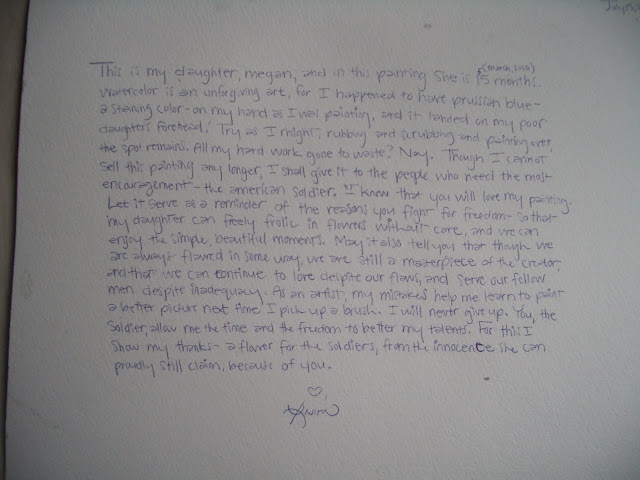 (march, 2010)
This is my daughter, megan, and in this painting she is 15 months.
Watercolor is an unforgiving art, for I happened to have prussian blue-
a staining color-on my hand as I was painting, and it landed on my poor
daughter's forehead! Try as I might, rubbing and scrubbing and painting over,
the spot remains. All my hard work gone to waste? Nay. Though I cannot
sell this painting any longer, I shall give it to the people who need the most
encouragement- the american soldier. I know that you will love my painting.
Let it serve as a reminder of the reasons you fight for freedom- so that
my daughter can freely frolic in flowers without care, and we can
enjoy the simple, beautiful moments. May it also tell you that though we
are always flawed in some way, we are still a masterpiece of the creator,
and that we can continue to love despite our flaws, and serve our fellow
men despite inadequacy. As an artist, my mistakes help me learn to paint
a better picture next time I pick up a brush. I will never give up. You, the
soldier, allow me the time and the freedom to better my talents. For this I
show my thanks- a flower for the soldiers, from the innocence she can
proudly still claim, because of you.